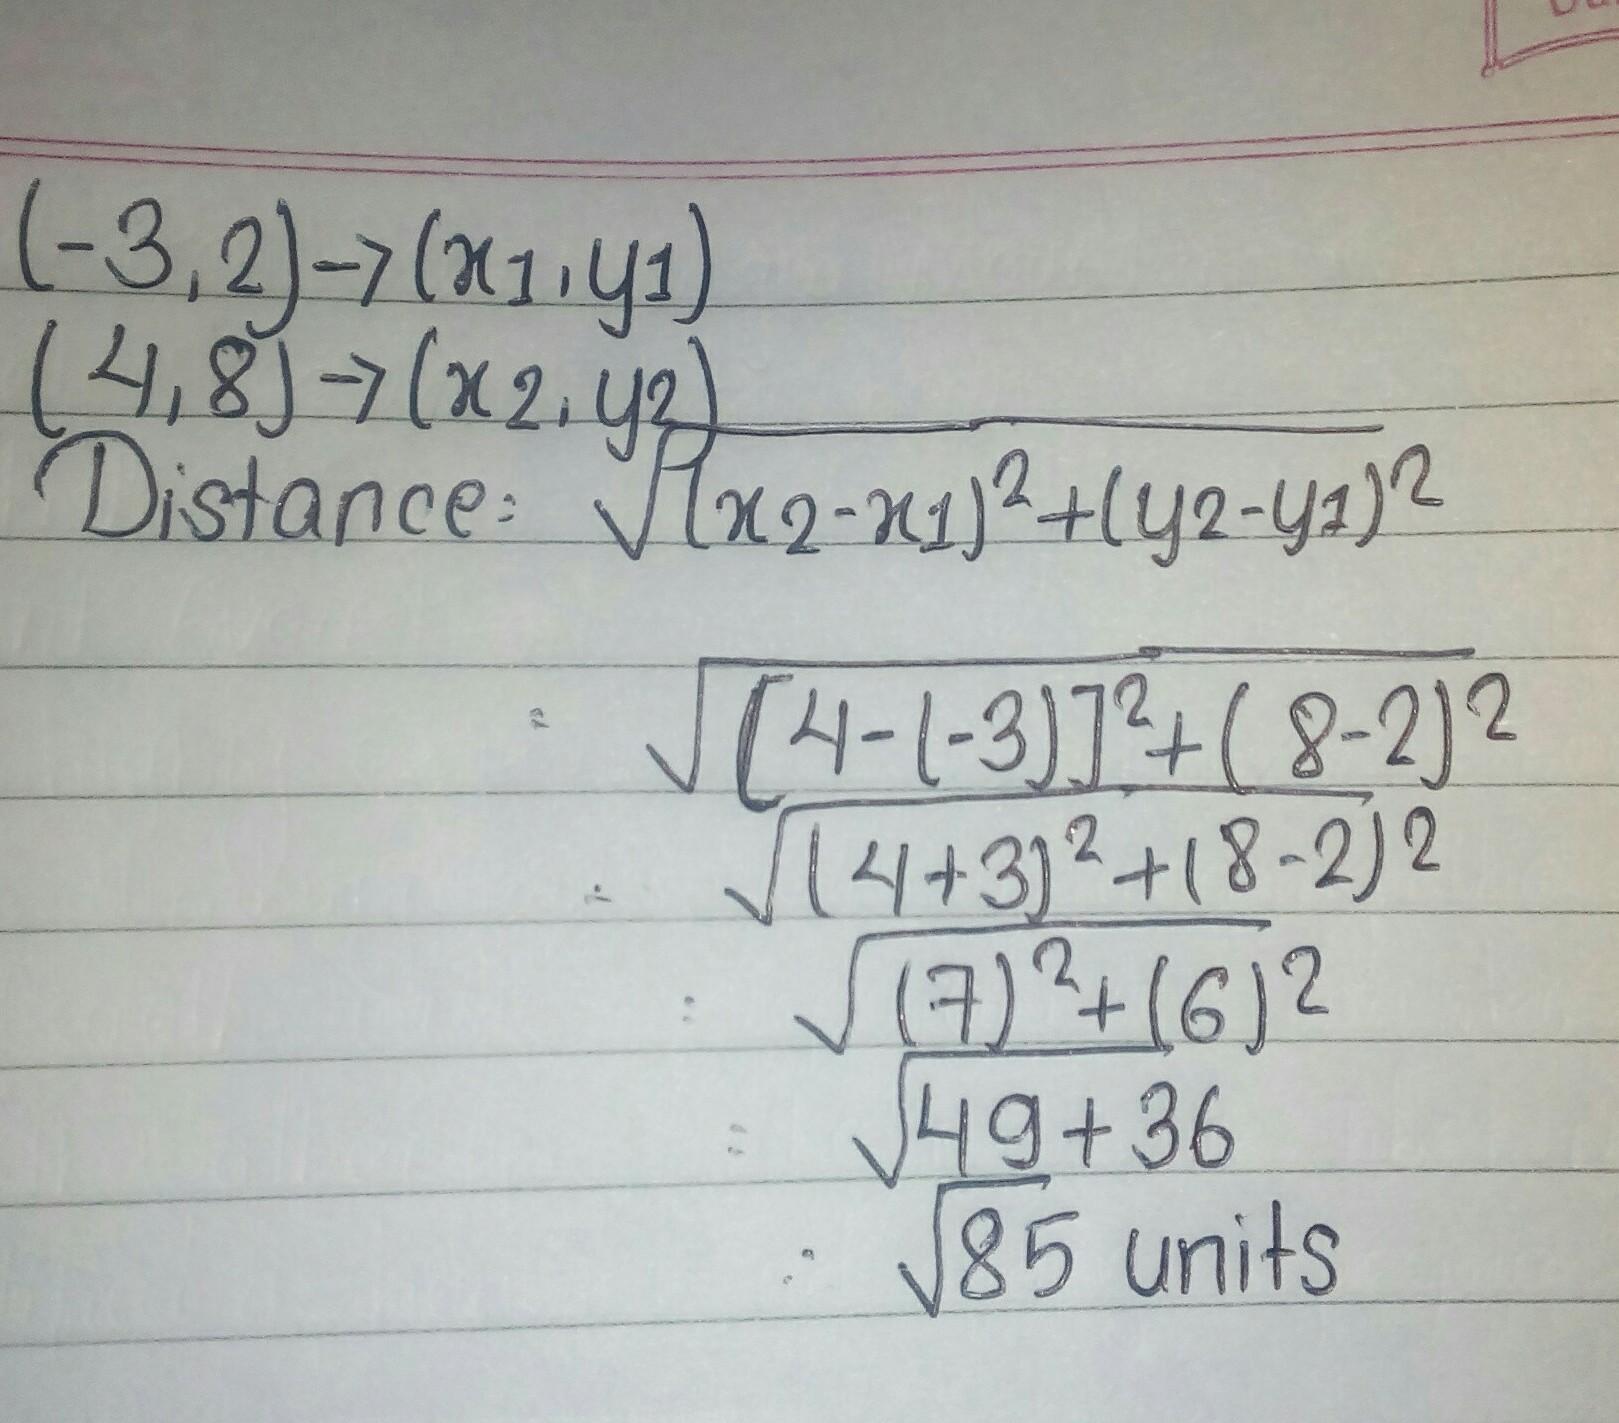 (-3,2)->(x1,y1)
(4,8)->(x2,y2)
Distance= √(x2-x1)²+(y2-y1)²
= √[4-(-3)]²+(8-2)²
= √(4+3)²+(8-2)²
= √(7)²+(6)²
= √49+36
= √85 units